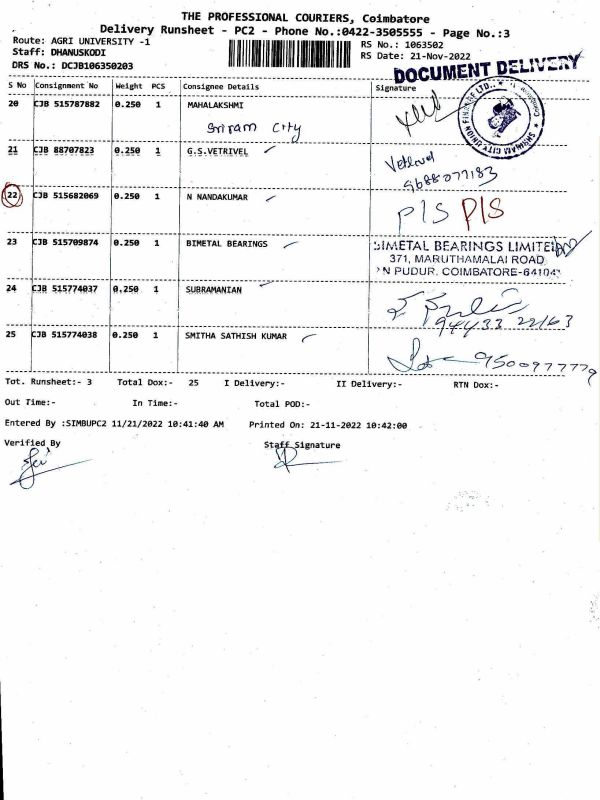 THE PROFESSIONAL COURIERS, Coimbatore
Delivery Runsheet - PC2 - Phone No.:0422-3505555 - Page No.:3
Route: AGRI UNIVERSITY -1
RS No.: 1063502
Staff: DHANUSKODI
RS Date: 21-Nov-2022
DRS No.: DCJB106350203
DOCUMENT DELIVERY
S No Consignment No Weight PCS Consignee Details Signature
20 CJB 515787882 0.250 1 MAHALAKSHMI
Sriram City
SHRIRAM CITY UNION FINANCE LTD.,
21 CJB 88707823 0.250 1 G.S.VETRIVEL
Vetrivel
9688077183
22 CJB 515682069 0.250 1 N NANDAKUMAR
P/S P/S
23 CJB 515709874 0.250 1 BIMETAL BEARINGS
BIMETAL BEARINGS LIMITED
371, MARUTHAMALAI ROAD
N PUDUR, COIMBATORE-64104
24 CJB 515774037 0.250 1 SUBRAMANIAN
94433 22163
25 CJB 515774038 0.250 1 SMITHA SATHISH KUMAR
9500977779
Tot. Runsheet:- 3 Total Dox:- 25 I Delivery:- II Delivery:- RTN Dox:-
Out Time:- In Time:- Total POD:-
Entered By :SIMBUPC2 11/21/2022 10:41:40 AM Printed On: 21-11-2022 10:42:00
Verified By Staff Signature